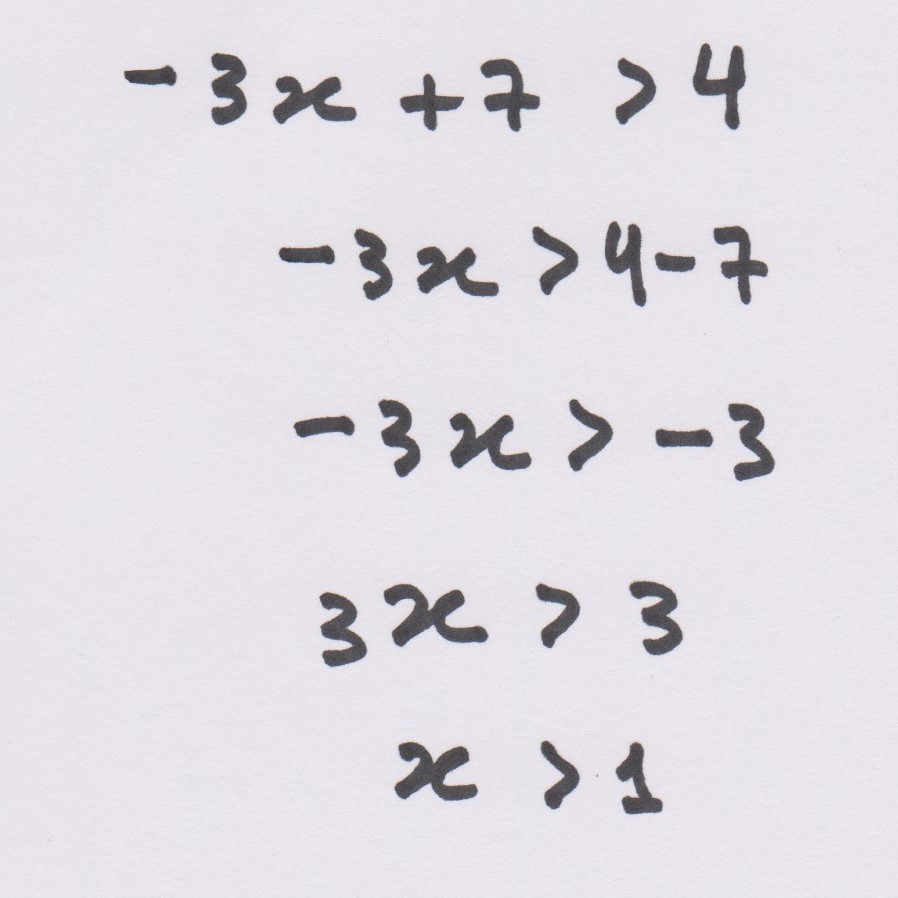 -3x +7 >4
-3x >4-7
-3x > -3
3x > 3
x >1